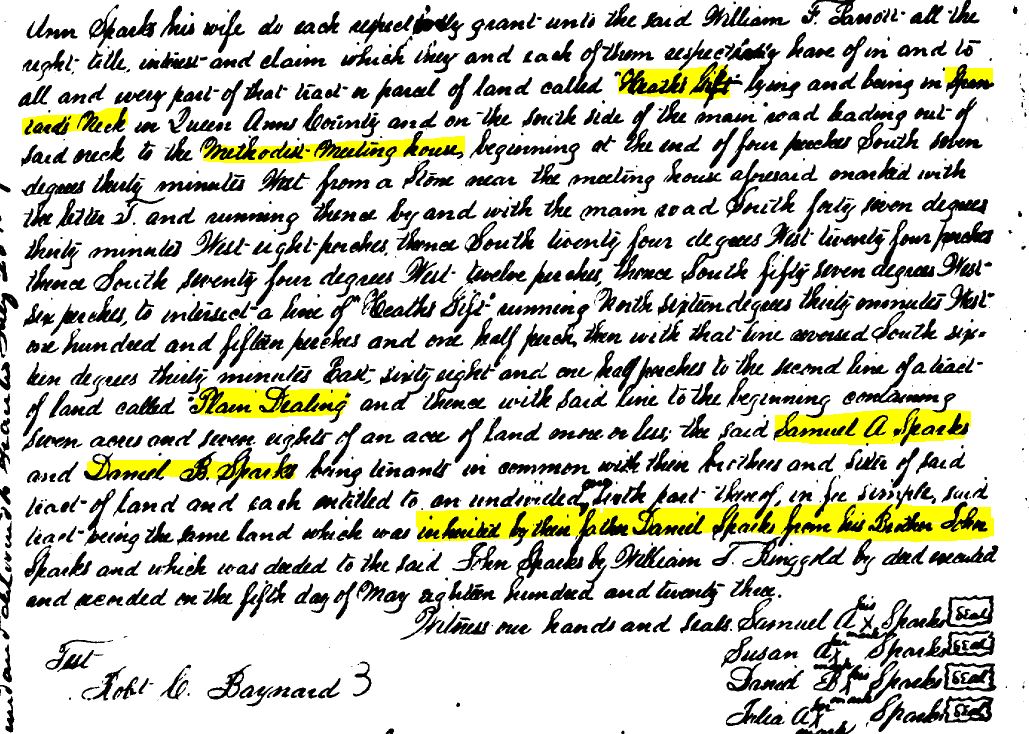 Ann Sparks his wife do each respectively grant unto the said William F. Parrott all the
right, title, interest and claim which they and each of them respectively have of in and to
all and every part of that tract or parcel of land called "Heaths Gift" lying and being in Span
iards Neck in Queen Anns County and on the south side of the main road leading out of
said neck to the Methodist Meeting house, beginning at the end of four perches South seven
degrees thirty minutes West from a Stone near the meeting house aforesaid marked with
the letter T. and running thence by and with the main road South forty seven degrees
thirty minutes West eight perches, thence South twenty four degrees West twenty four perches
thence South seventy four degrees West twelve perches, thence South fifty seven degrees West
six perches, to intersect a line of "Heaths Gift" running North sixteen degrees thirty minutes West
one hundred and fifteen perches and one half perch, then with that line reversed South six-
teen degrees thirty minutes East, sixty eight and one half perches to the second line of a tract
of land called "Plain Dealing" and thence with said line to the beginning containing
seven acres and seven eights of an acre of land more or less; the said Samuel A Sparks
and Daniel B. Sparks being tenants in common with their brothers and sister of said
tract of land and each entitled to an undivided one sixth part thereof, in fee simple, said
tract being the same land which was inherited by their father Daniel Sparks from his Brother John
Sparks and which was deeded to the said John Sparks by William T. Ringgold by deed executed
and recorded on the fifth day of May eighteen hundred and twenty three.
Witness our hands and seals. Samuel A his x mark Sparks Seal
Test Susan A her x mark Sparks Seal
Robt C. Baynard 3 Daniel B his x mark Sparks Seal
Julia A her x mark Sparks Seal